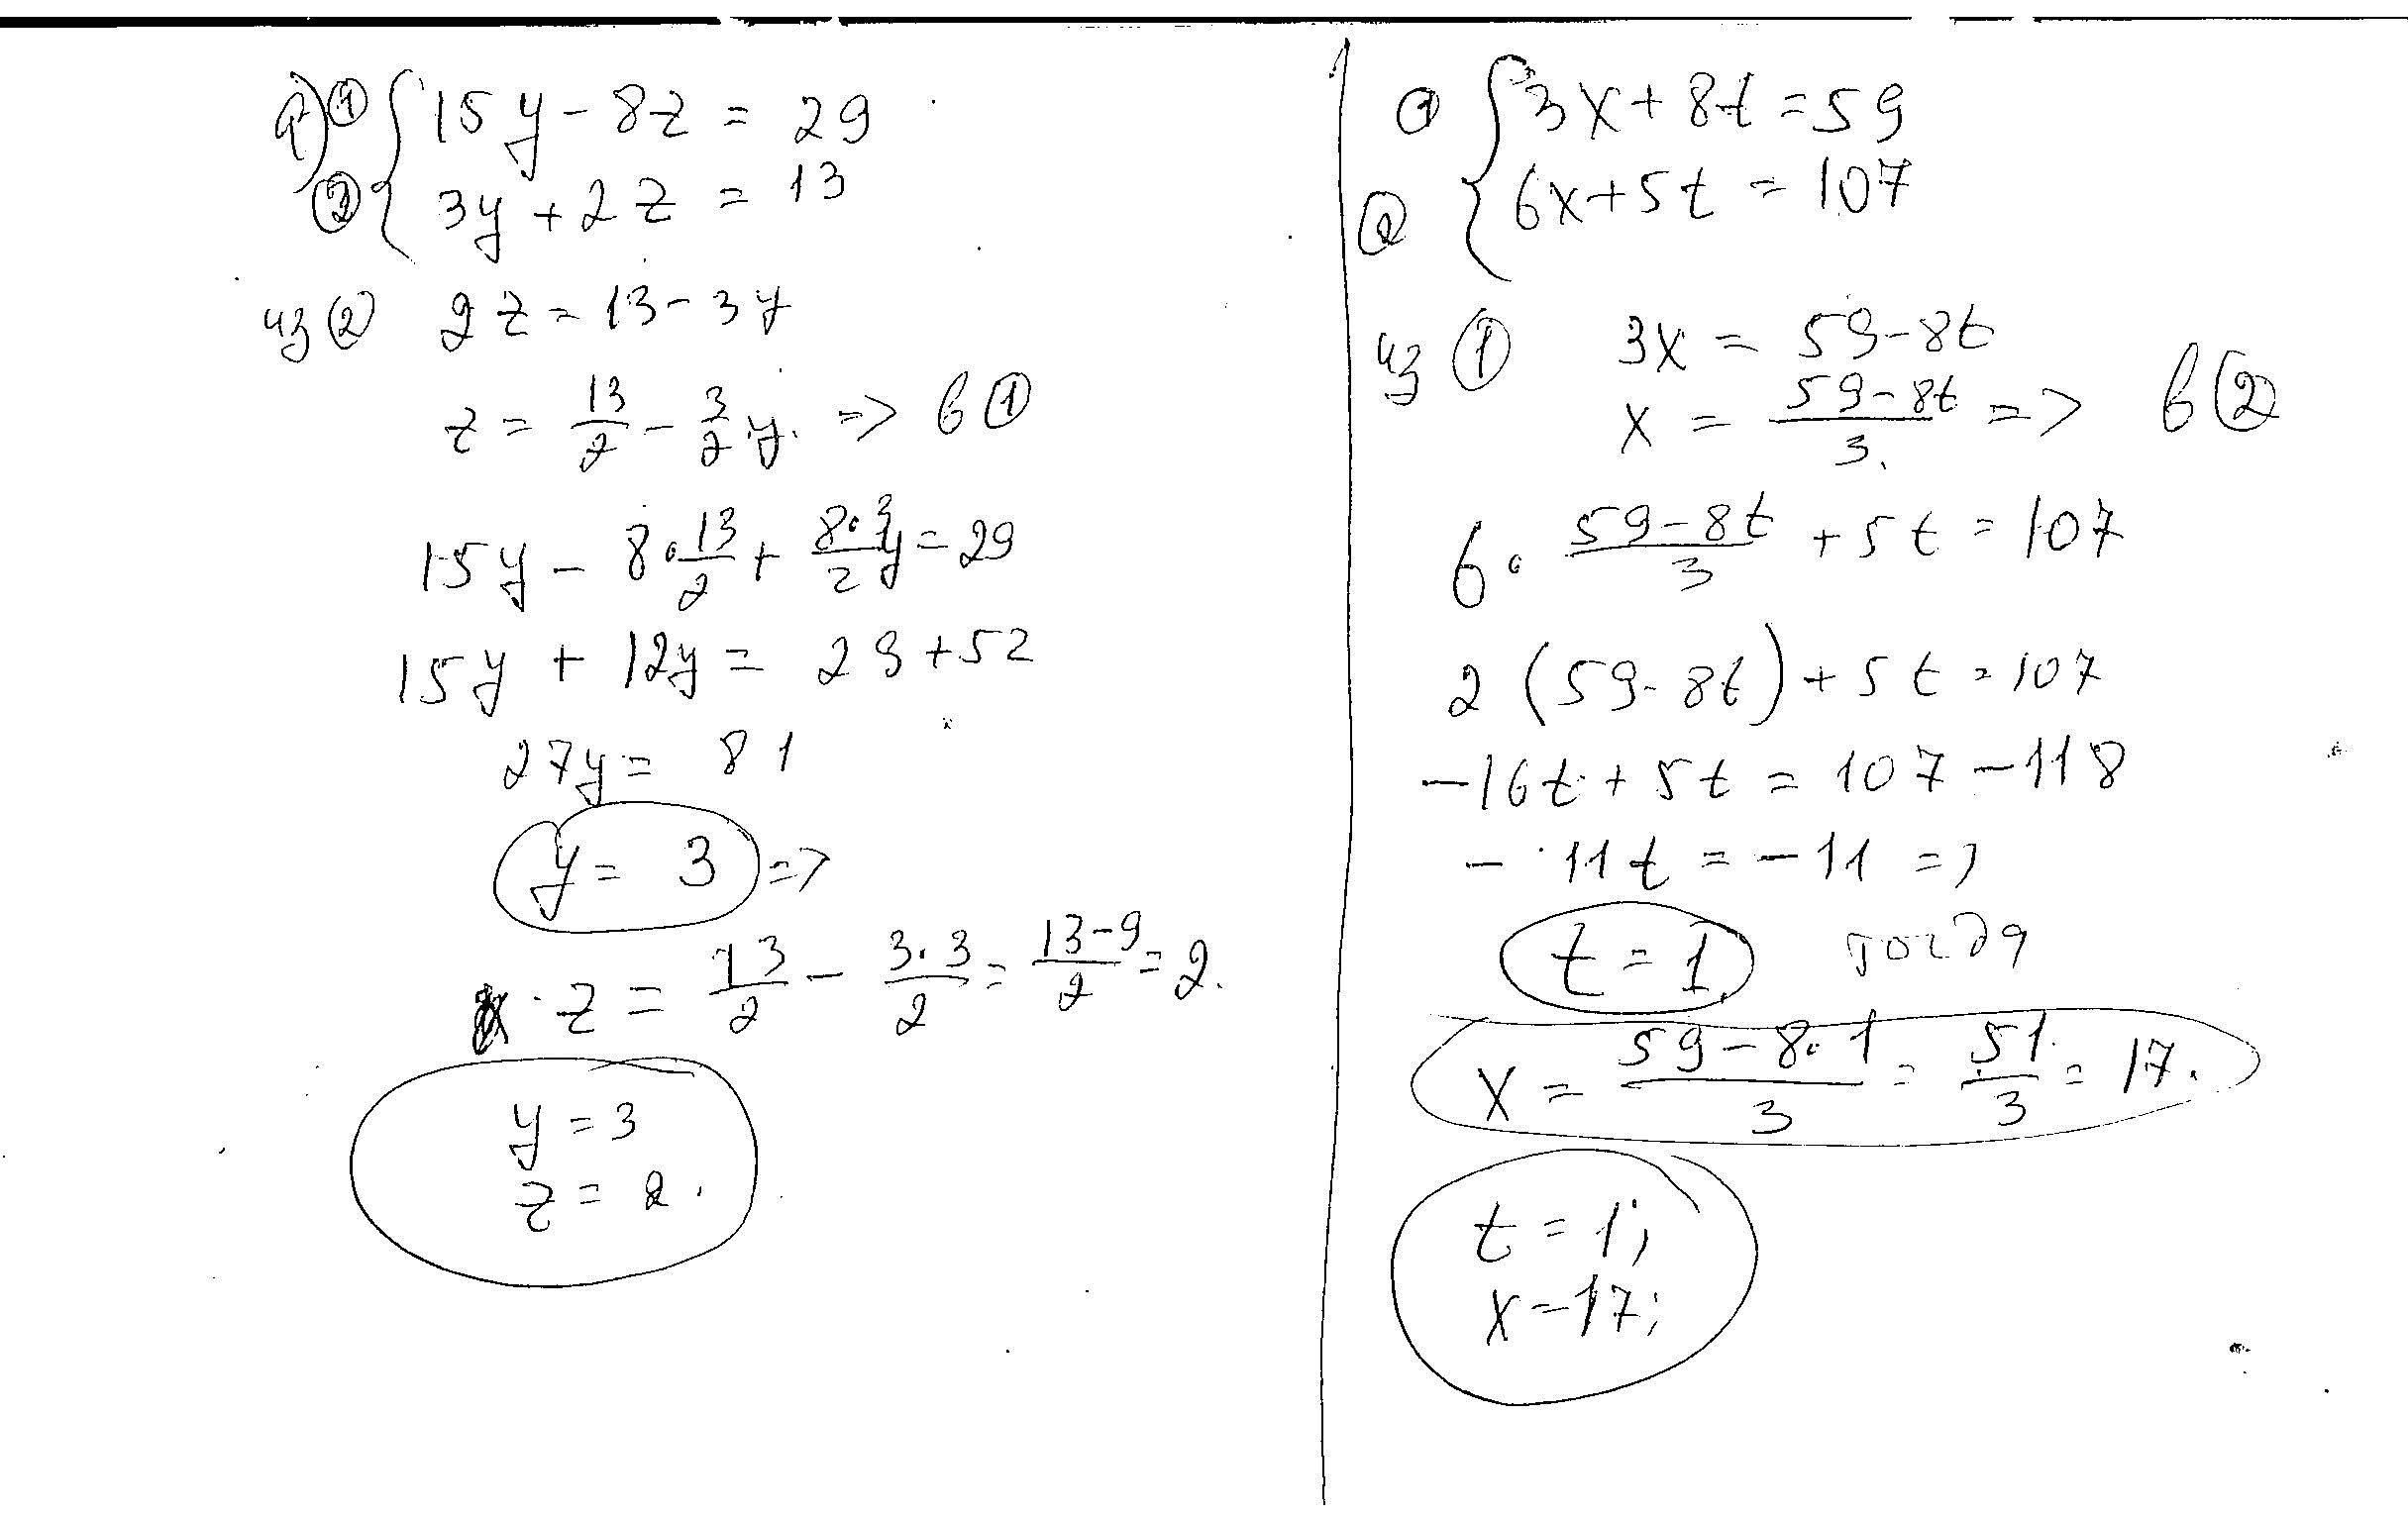 а) ① { 15y - 8z = 29
② 3y + 2z = 13
из ② 2z = 13 - 3y
z = 13/2 - 3/2 y. => в ①
15y - 8·13/2 + 8·3/2 y = 29
15y + 12y = 29 + 52
27y = 81
y = 3 =>
z = 13/2 - 3·3/2 = 13-9/2 = 2.
y = 3
z = 2.
① { 3x + 8t = 59
② 6x + 5t = 107
из ① 3x = 59 - 8t
x = 59-8t/3. => в ②
6 · 59-8t/3 + 5t = 107
2 (59 - 8t) + 5t = 107
-16t + 5t = 107 - 118
- 11t = -11 =>
t = 1. тогда
x = 59-8·1/3 = 51/3 = 17.
t = 1;
x = 17;